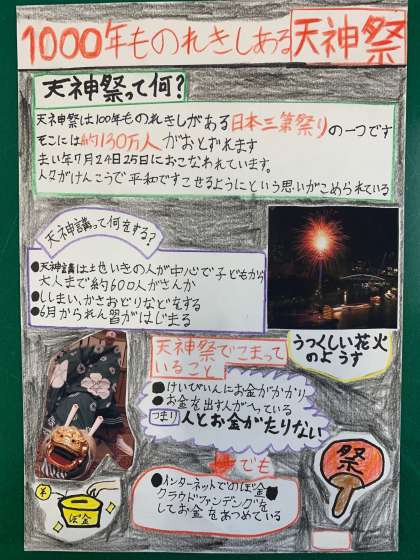 1000年ものれきしある天神祭
天神祭って何?
天神祭は100年ものれきしがある日本三第祭りの一つです
そこには約130万人がおとずれます
まい年7月24日25日におこなわれています。
人々がけんこうで平和ですごせるようにという思いがこめられている
天神講って何をする?
●天神講は土地いきの人が中心で子どもから
大人まで約600人がさんか
●ししまい、かさおどりなどをする
●6月かられん習がはじまる
うつくしい花火
のようす
天神祭でこまって
いること
●けいびいんにお金がかかり
●お金を出す人がへっている
つまり 人とお金がたりない
でも
●インターネットでのぼ金
クラウドファンディングを
してお金をあつめている
¥
ぼ金
祭